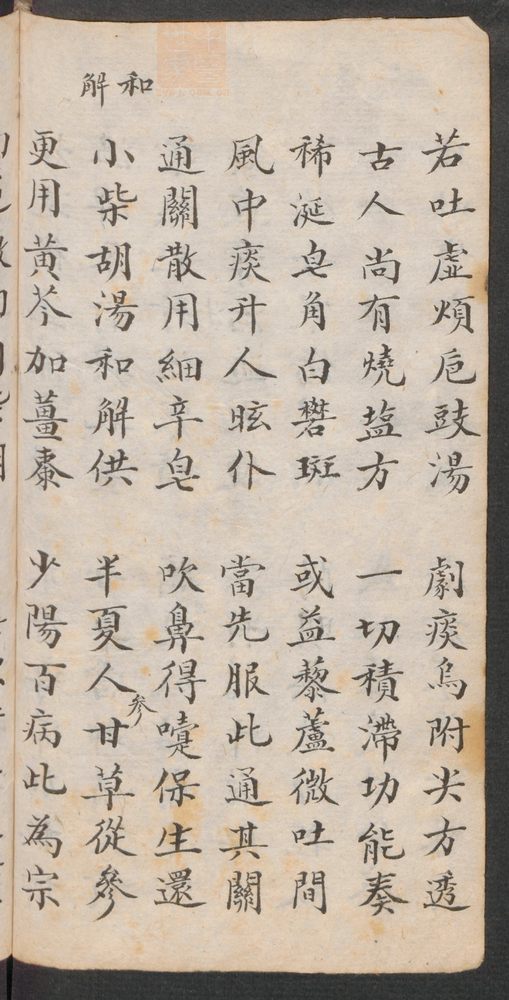 若吐虛煩卮豉湯 劇痰烏附尖方透
古人尚有燒塩方 一切積滯功能奏
稀涎皂角白礬斑 或益藜蘆微吐間
風中痰升人眩仆 當先服此通其關
通關散用細辛皂 吹鼻得嚏保生還
和解
小柴胡湯和解供 半夏人參甘草從參
更用黃芩加薑棗 少陽百病此為宗